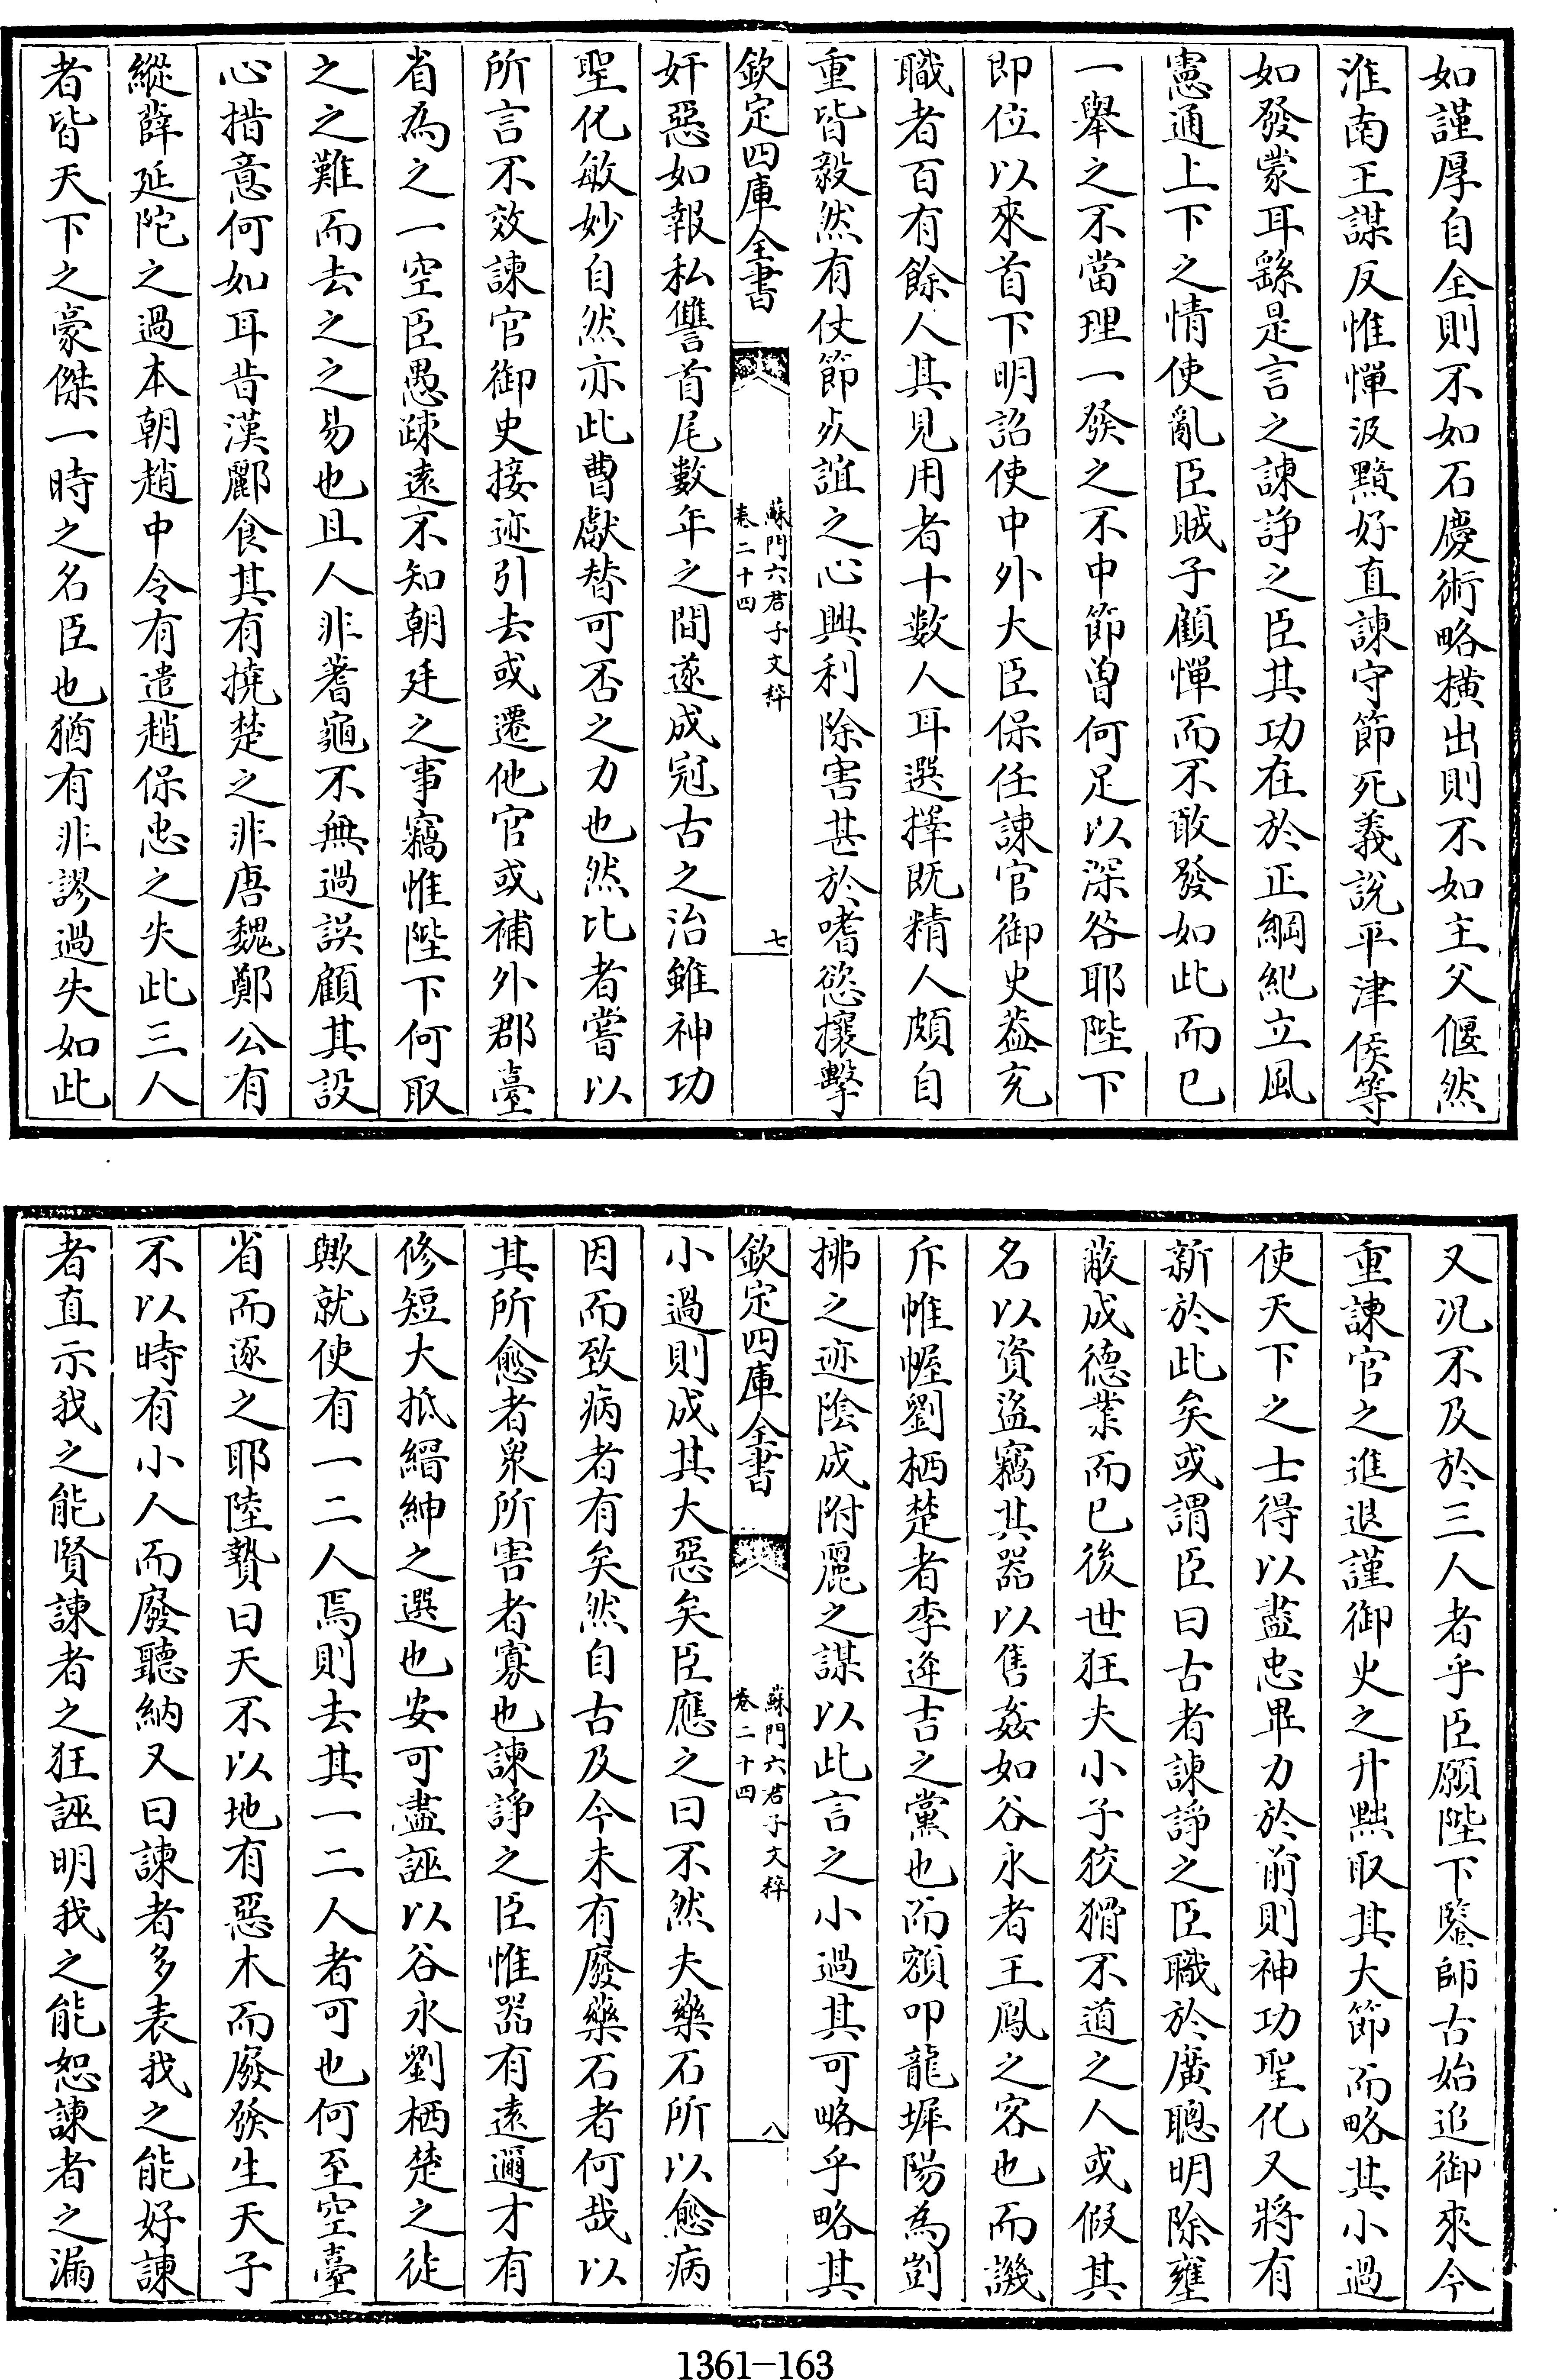 如謹厚自全則不如石慶術略橫出則不如主父偃然
淮南王謀反惟憚汲黯好直諫守節死義說平津侯等
如發蒙耳繇是言之諫諍之臣其功在於正綱紀立風
憲通上下之情使亂臣賊子顧憚而不敢發如此而已
一舉之不當理一發之不中節曽何足以深咎耶陛下
即位以來首下明詔使中外大臣保任諫官御史葢充
職者百有餘人其見用者十數人耳選擇既精人頗自
重皆毅然有仗節死誼之心興利除害甚於嗜慾攘擊
欽定四庫全書
蘇門六君子文粹
卷二十四
七
奸惡如報私讐首尾數年之間遂成冠古之治雖神功
聖化敏妙自然亦此曹獻替可否之力也然比者嘗以
所言不效諫官御史接迹引去或遷他官或補外郡臺
省為之一空臣愚疎遠不知朝廷之事竊惟陛下何取
之之難而去之之易也且人非蓍龜不無過誤顧其設
心措意何如耳昔漢酈食其有撓楚之非唐魏鄭公有
縱薛延陀之過本朝趙中令有遣趙保忠之失此三人
者皆天下之豪傑一時之名臣也猶有非謬過失如此
又况不及於三人者乎臣願陛下鑒師古始追御來今
重諫官之進退謹御史之升黜取其大節而略其小過
使天下之士得以盡忠畢力於前則神功聖化又將有
新於此矣或謂臣曰古者諫諍之臣職於廣聰明除壅
蔽成德業而已後世狂夫小子狡猾不道之人或假其
名以資盜竊其器以售姦如谷永者王鳳之客也而譏
斥帷幄劉栖楚者李逢吉之黨也而額叩龍墀陽為剴
拂之迹陰成附麗之謀以此言之小過其可略乎略其
欽定四庫全書
蘇門六君子文粹
卷二十四
八
小過則成其大惡矣臣應之曰不然夫藥石所以愈病
因而致病者有矣然自古及今未有廢藥石者何哉以
其所愈者衆所害者寡也諫諍之臣惟器有遠邇才有
修短大抵縉紳之選也安可盡誣以谷永劉栖楚之徒
歟就使有一二人焉則去其一二人者可也何至空臺
省而逐之耶陸贄曰天不以地有惡木而廢發生天子
不以時有小人而廢聽納又曰諫者多表我之能好諫
者直示我之能賢諫者之狂誣明我之能恕諫者之漏
1361-163